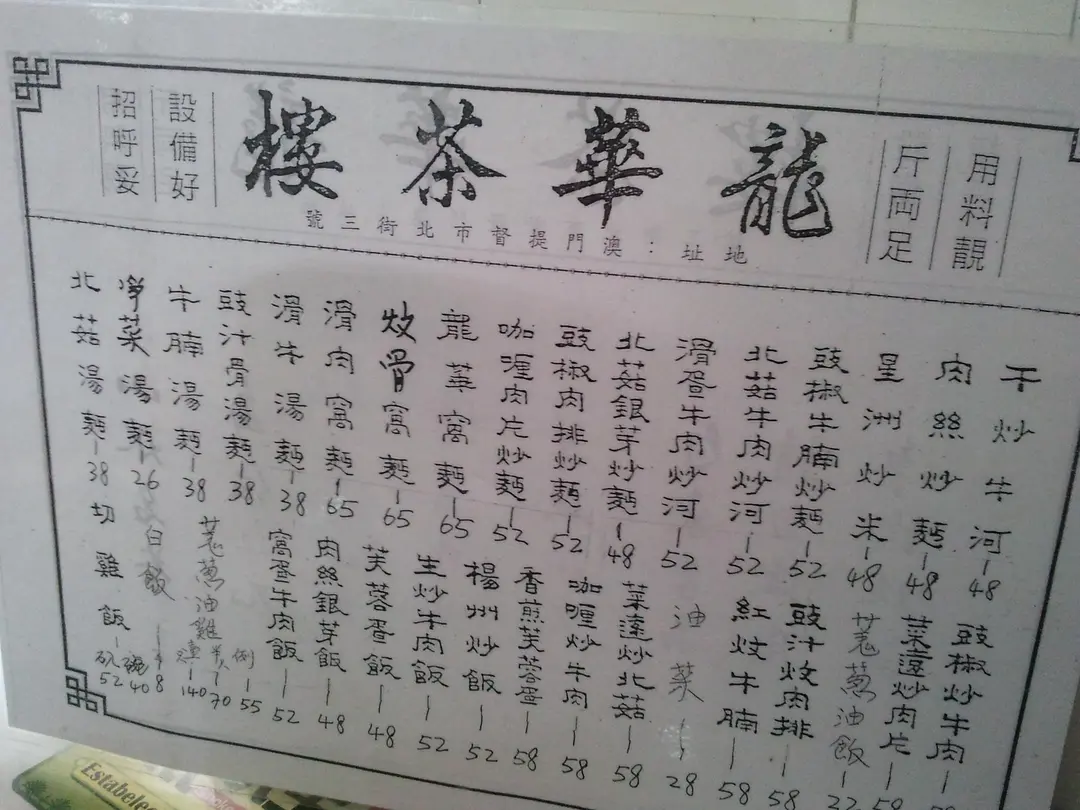 用料靚
斤両足
龍華茶樓
設備好
招呼妥
地址：澳門提督市北街三號
干炒牛河-48
肉絲炒麵-48
星洲炒米-48
豉椒牛腩炒麵-52
北菇牛肉炒河-52
滑蛋牛肉炒河-52
北菇銀芽炒麵-48
豉椒肉排炒麵-52
咖喱肉片炒麵-52
龍華窩麵-65
炆骨窩麵-65
滑肉窩麵-65
滑牛湯麵-38
豉汁骨湯麵-38
牛腩湯麵-38
淨菜湯麵-26
北菇湯麵-38
豉椒炒牛肉
菜遠炒肉片
葱油飯
豉汁炆肉排-58
紅炆牛腩-58
油菜-28
菜遠炒北菇-58
咖喱炒牛肉-58
香煎芙蓉蛋-58
楊州炒飯-52
生炒牛肉飯-52
芙蓉蛋飯-48
肉絲銀芽飯-48
窩蛋牛肉飯-52
葱油雞
例-55
半-70
-140
白飯-8
切雞飯
52
碗40
Estabelec